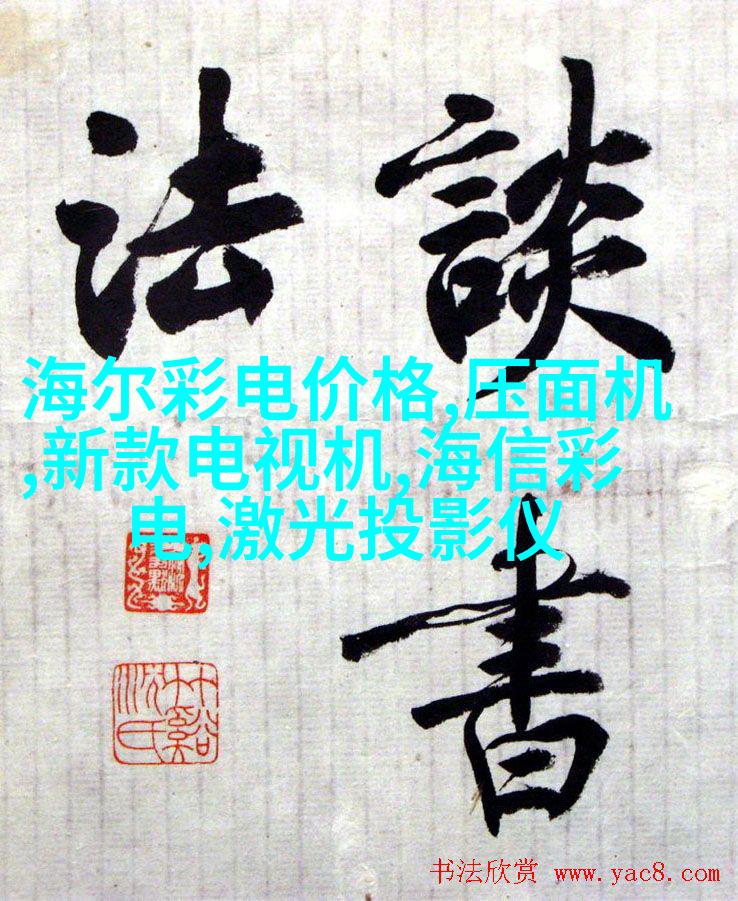 談書
法
海尔彩电价格,压面机
,新款电视机,海信彩
电,激光投影仪
书法欣赏 www.yac8.com